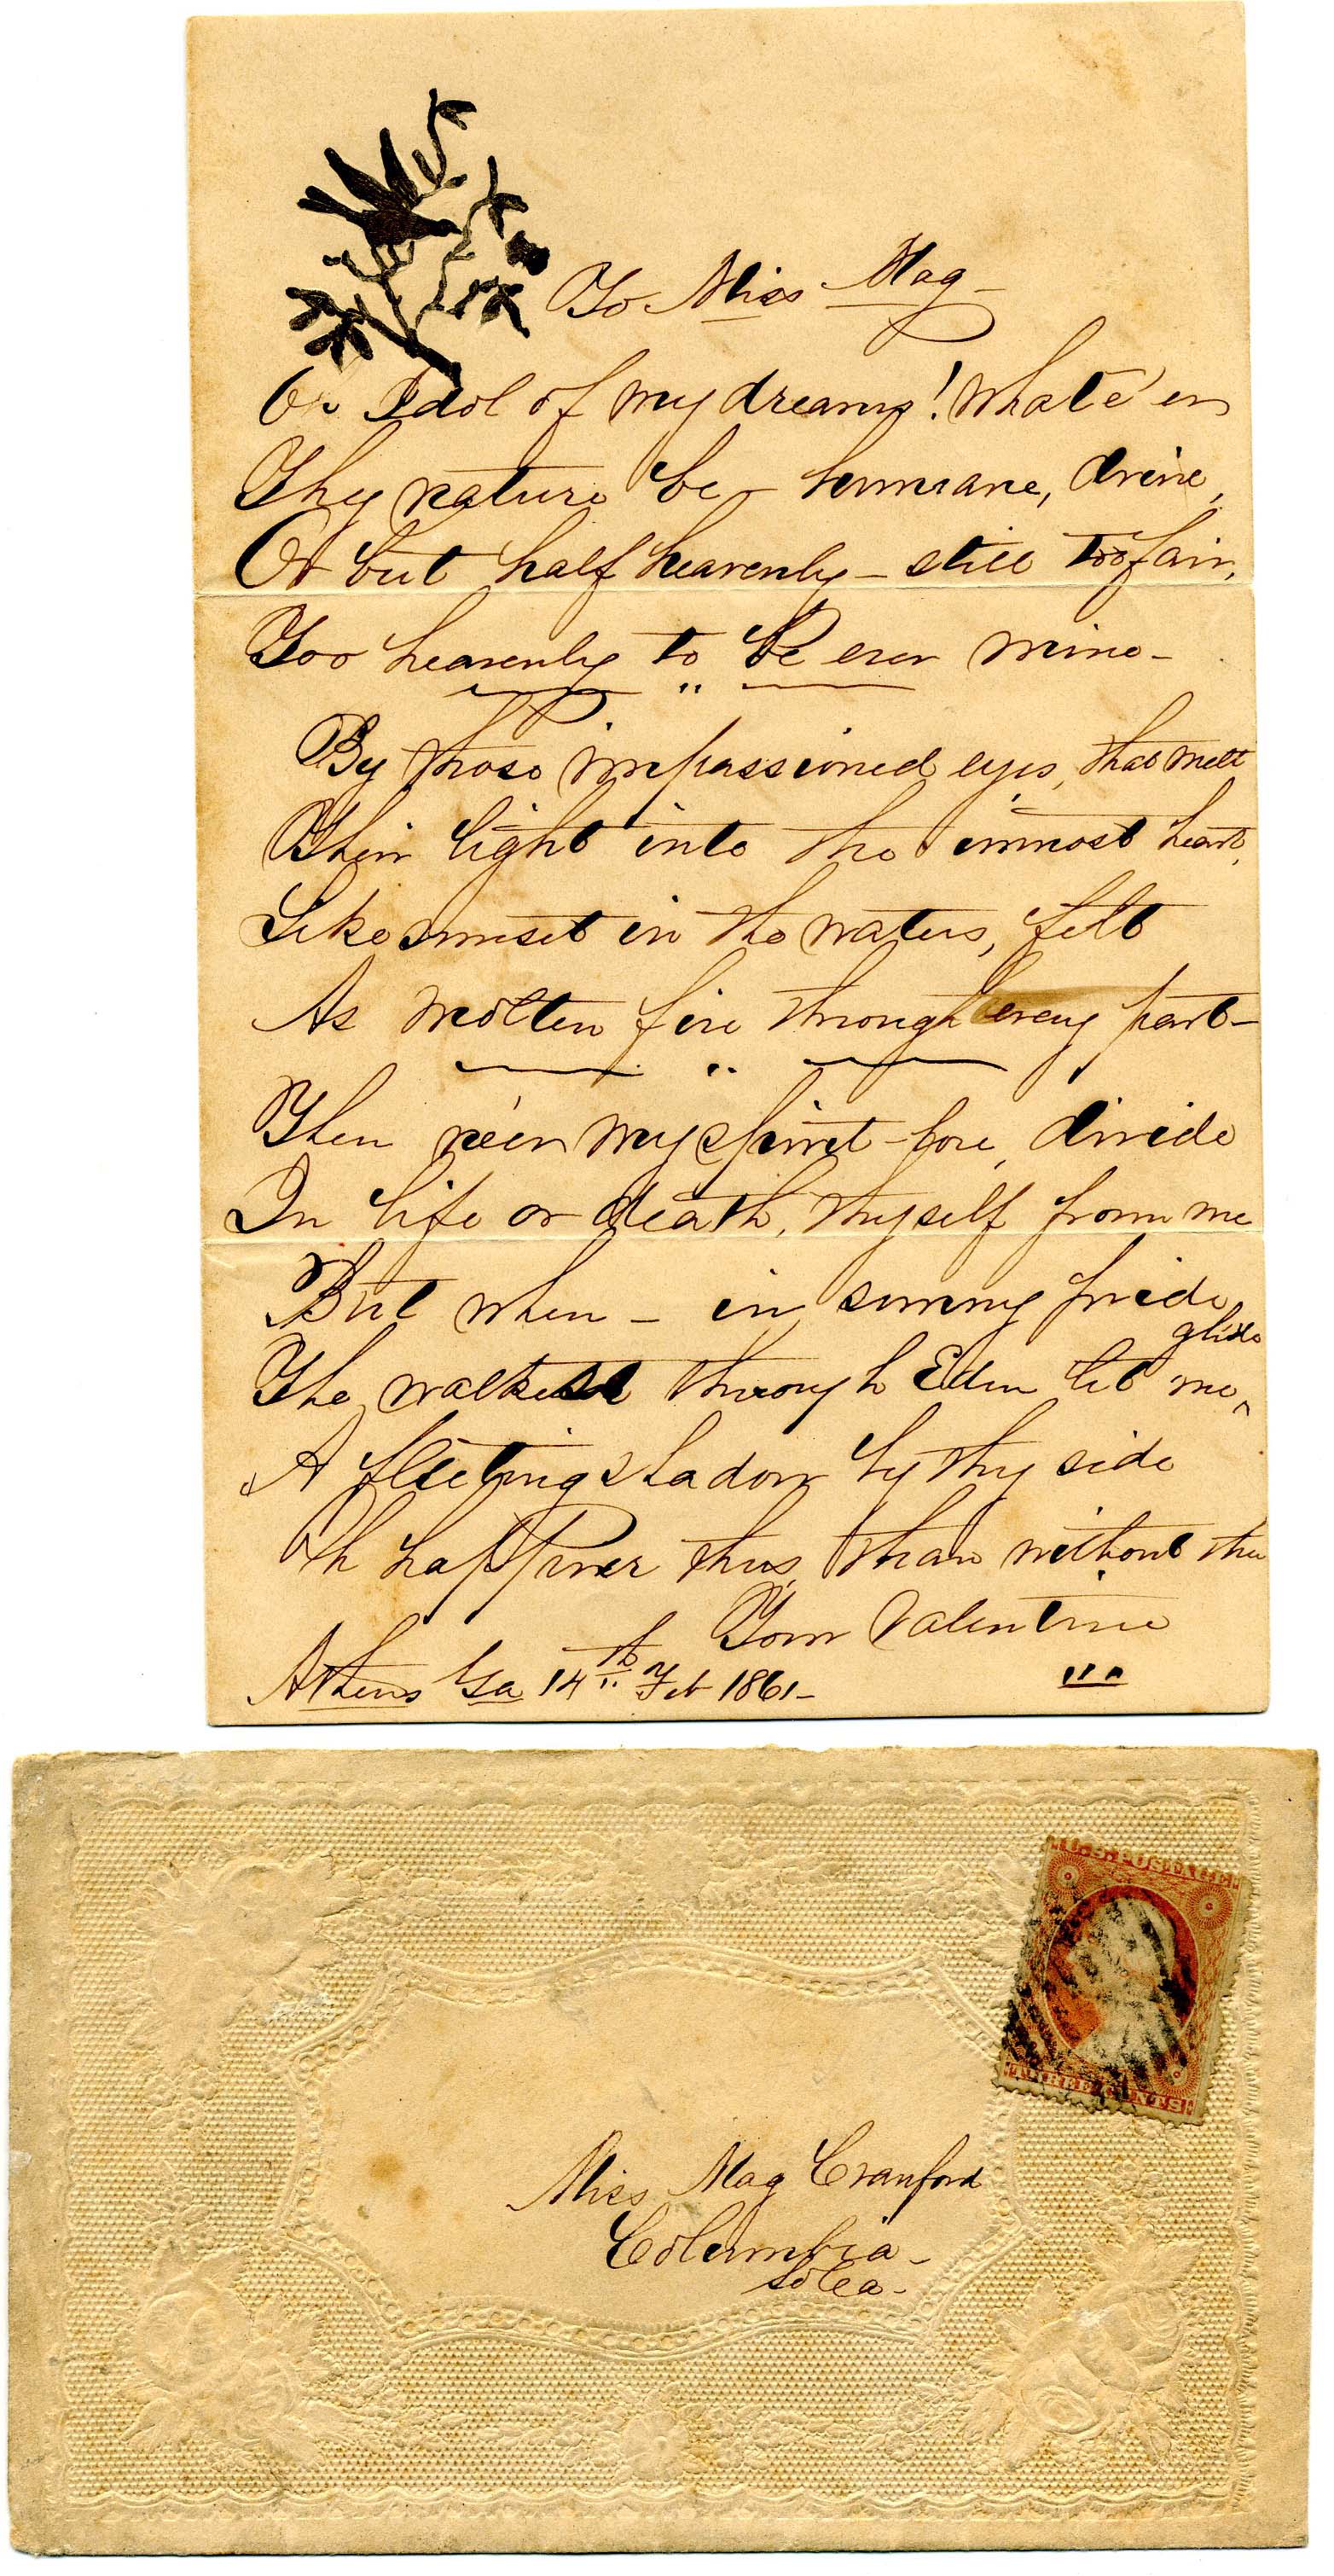 To Miss Mag -
Oh Idol of my dreams! Whate'er
Thy nature be - humane, divine,
Or but half heavenly - still too fair,
Too heavenly to be ever mine -
By those impassioned eyes, that melt
Their light into the inmost heart,
Like sunset in the waters, felt
As molten fire through every part -
Then ne'er my spirit-love, divide
In life or death, thyself from me
But when - in sunny pride
The through Eden let me ^ glide
A fleeting shadow by thy side
Oh happier thus, than without thee
Your Valentine
Athens Ga 14th Feb 1861 -
U.S. POSTAGE
THREE CENTS
Miss Mag Cranford
Columbia -
So Ca -